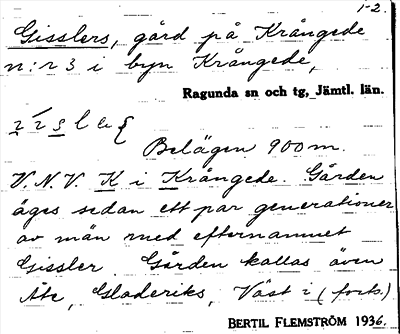 1-2.
Gisslers, gård på Krångede
n:r 3 i byn Krångede,
Ragunda sn och tg, Jämtl. län.
Belägen 900 m.
V.N.V. K i Krångede. Gården
äges sedan ett par generationer
av män med efternamnet
Gissler. Gården kallas även
Åte, Gladeriks, Väst i (forts.)
BERTIL FLEMSTRÖM 1936.